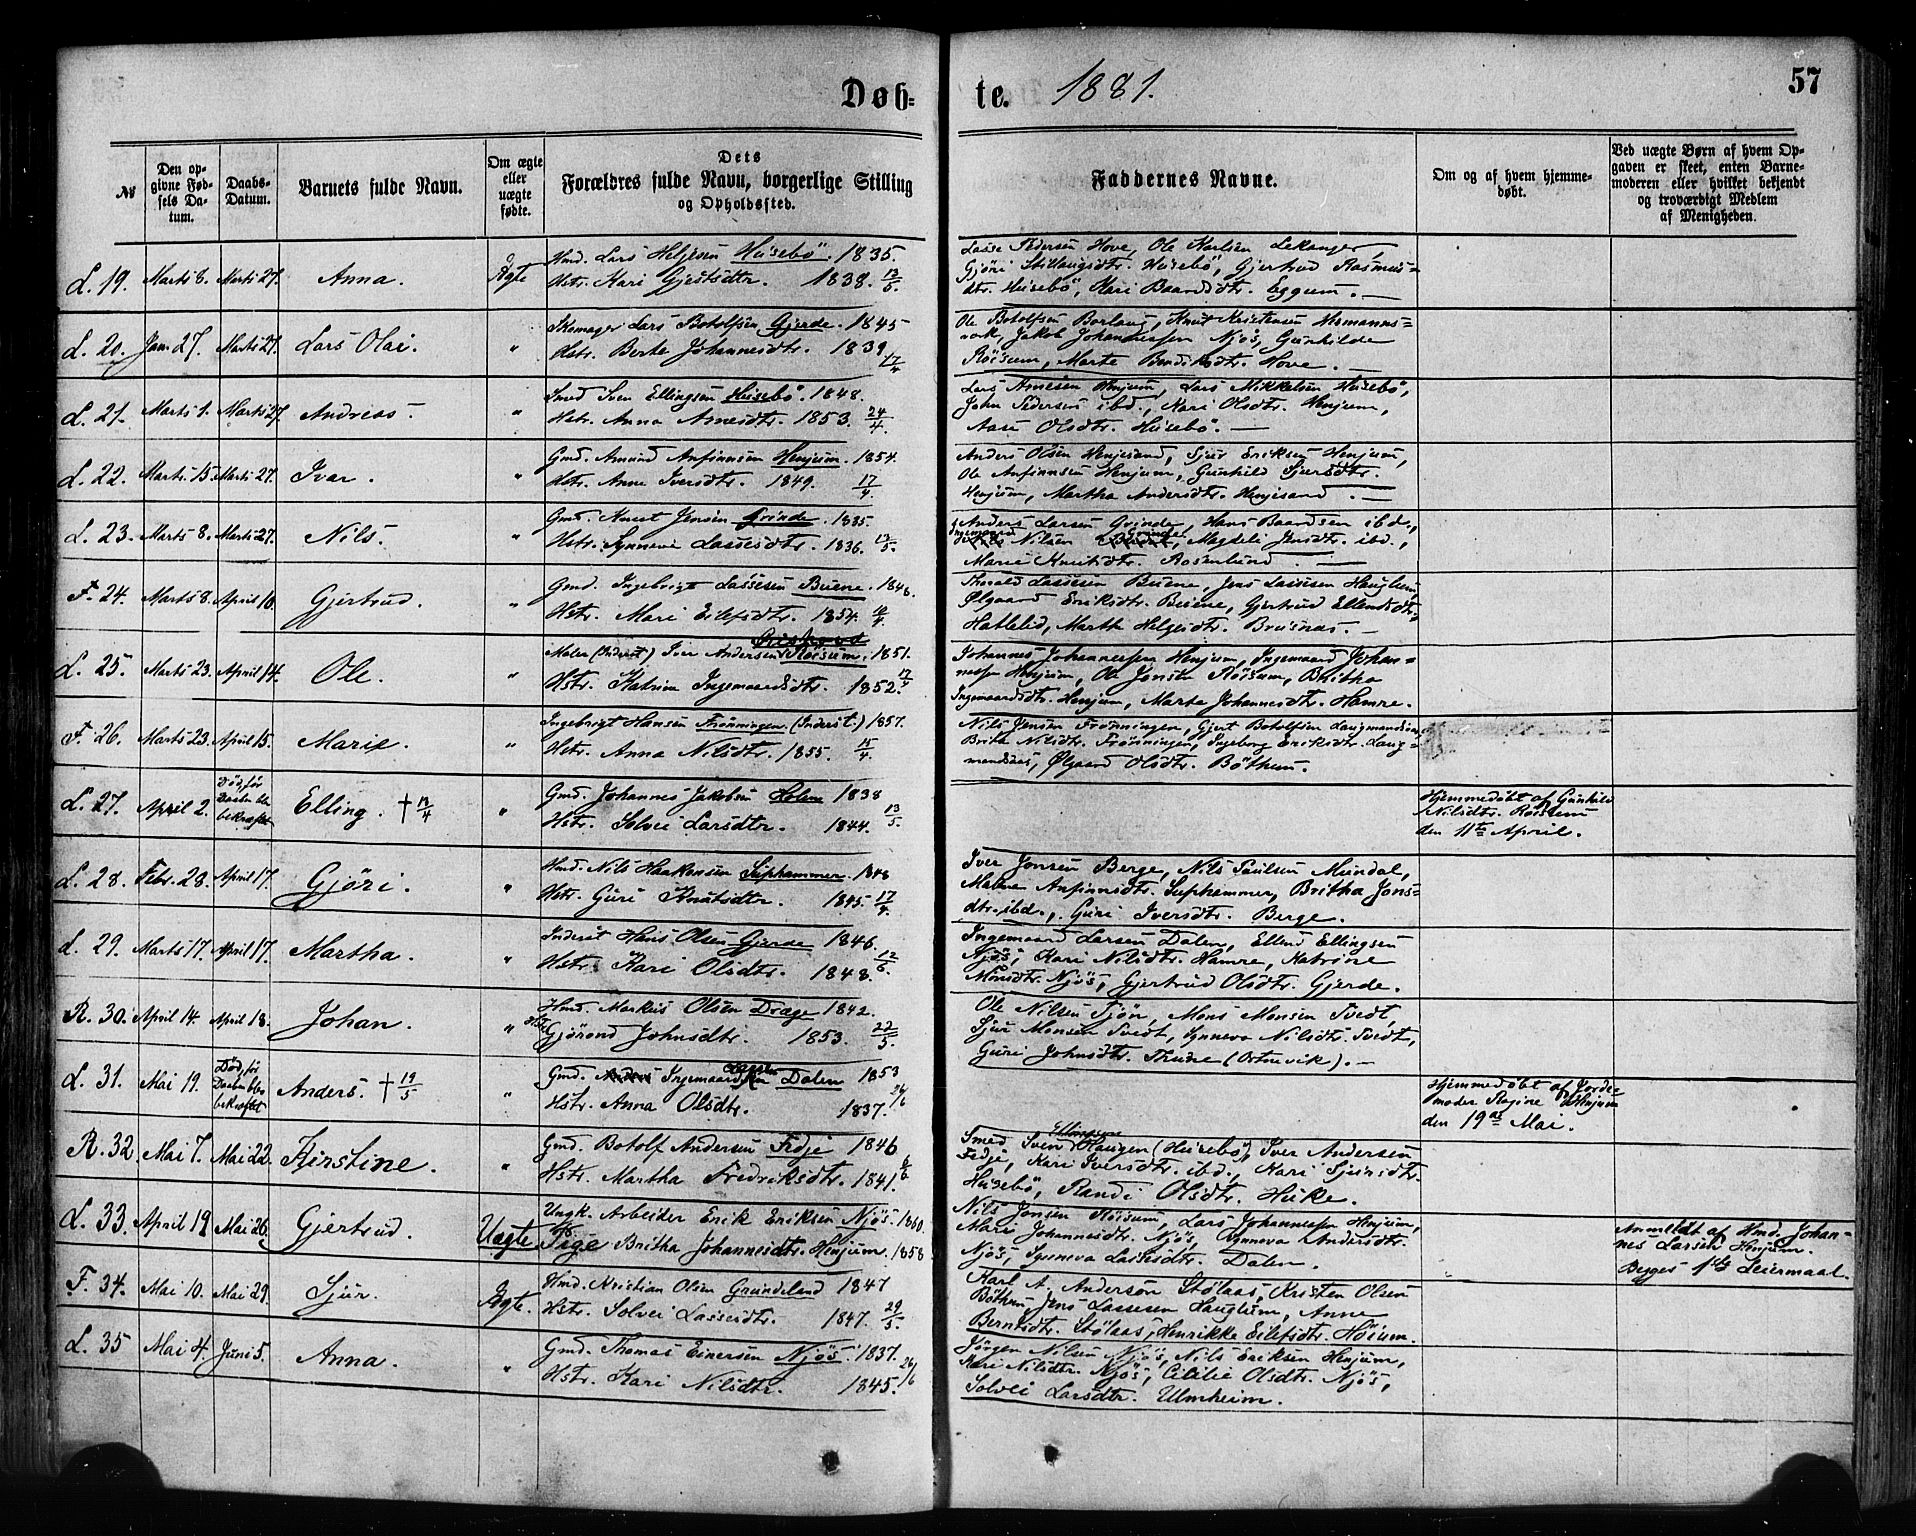 Døb-
te. 1881.
57
№
Den op-
givne Fød-
sels Da-
tum.
Daabs-
Datum.
Barnets fulde Navn.
Om ægte
eller
uægte
fødte.
Dets
Forældres fulde Navn, borgerlige Stilling
og Opholdssted.
Faddernes Navne.
Om og af hvem hjemme-
døbt.
Ved uægte Børn af hvem Op-
gaven er skeet, enten Barne-
moderen eller hvilket bekjendt
og troværdigt Medlem
af Menigheden.
L. 19. Marts 8. Marts 27. Anna. Ægte
Hmd. Lars Heljesen Husebö. 1835.
Hstr. Kari Gjestsdtr. 1838. 13/5
Lasse Pedersen Hove, Ole Karlsen Lekanger,
Gjöri Stillaugsdtr. Husebö, Gjertrud Rasmus-
dtr. Husebö, Kari Baardsdtr. Eggum. —
L. 20. Jan. 27. Marts 27. Lars Olai. "
Skomager Lars Botolfsen Gjerde. 1845
Hstr. Berte Johannesdtr. 1839 17/4
Ole Botolfsen Borlaug, Knut Kristensen Hermanns-
vok, Jakob Johannessen Njös, Gunhilde
Röisum, Marte Bendiksdtr. Hove. —
L. 21. Marts 1. Marts 27. Andreas. "
Smed Sven Ellingsen Husebö. 1848.
Hstr. Anna Arnesdtr. 1853. 24/4
Lars Arnesen Henjum, Lars Mikkelsen Husebö,
John Pedersen ibd., Kari Olsdtr. Henjum,
Aase Olsdtr. Husebö. —
L. 22. Marts 15. Marts 27. Ivar. "
Gmd. Amund Anfinnsen Henjum. 1854.
Hstr. Anne Iversdtr. 1849. 17/4
Anders Olsen Henjesand, Sjur Eriksen Henjum,
Ole Anfinnsen Henjum, Gunhild Sjursdtr.
Henjum, Martha Andersdtr. Henjesand. —
L. 23. Marts 8. Marts 27. Nils. "
Gmd. Knut Jensen Grinde. 1835.
Hstr. Synneve Lassesdtr. 1836. 13/5
Anders Larsen Grinde, Hans Baardsen ibd.,
Nilsen Grinde, Magdeli Jensdtr. ibd.,
Marie Knutsdtr. Rosenlund. —
F. 24. Marts 8. April 10. Gjertrud. "
Gmd. Ingebrigt Lassesen Buene. 1848.
Hstr. Mari Eilefsdtr. 1854.
Lassesen Buene, Jens Lassesen Hauglum,
Ølgaard Eriksdtr. Buene, Gjertrud Ellendsdtr.
Hatlelid, Martha Helgesdtr. Brusnas. —
L. 25. Marts 23. April 14. Ole. "
Maler (Inderst) Iver Andersen Röisum. 1851.
Hstr. Katrine Ingemaardsdtr. 1852. 17/4
Johannes Johannessen Henjum, Ingemaard Johan-
nessen Henjum, Ole Jonsen Röisum, Britha
Ingemaardsdtr. Henjum, Marte Johannesdtr. Hamre.
F. 26. Marts 23. April 15. Marie. "
Ingebrigt Hansen Frönningen (Inderst.) 1857.
Hstr. Anna Nilsdtr. 1855. 15/4
Nils Jensen Frönningen, Gjert Botolfsen Laugmandsnæs
Brita Nilsdtr. Frönningen, Ingeborg Eriksdtr. Laug-
mandsnæs, Ølgaard Olsdtr. Böthun.
L. 27. April 2. Død, før
Daaben blev
bekræftet Elling. † 13/4 "
Gmd. Johannes Jakobsen Holen 1838
Hstr. Solvei Larsdtr. 1844. 13/5
Hjemmedøbt af Gunhild
Nilsdtr. Röisum
den 11te April.
L. 28. Febr. 28. April 17. Gjöri. "
Hmd. Nils Haakensen Suphammer. 1848
Hstr. Guri Knutsdtr. 1845. 17/4
Iver Jonsen Berge, Nils Paulsen Mundal,
Malene Anfinnsdtr. Suphammer, Britha Jons-
dtr. ibd., Guri Iversdtr. Berge.
L. 29. Marts 17. April 17. Martha. "
Inderst Hans Olsen Gjerde 1846.
Hstr. Kari Olsdtr. 1848. 12/6
Ingemaard Larsen Dalen, Ellend Ellingsen
Njös, Kari Nilsdtr. Hamre, Katrine
Monsdtr. Njös, Gjertrud Olsdtr. Gjerde.
R. 30. April 14. April 18. Johan. "
Hmd. Markus Olsen Drage 1842.
Hstr. Gjörond Johnsdtr. 1853. 22/5
Ole Nilsen Tjön, Mons Monsen Tvedt
Sjur Monsen Tvedt, Synneva Nilsdtr. Tvedt,
Guri Johnsdtr. Thune (Ortnevik). —
L. 31. Mai 19. Død, før
Daaben blev
bekræftet Anders. † 19/5
Gmd. Ingemaard Larsen Dalen 1853
Hstr. Anna Olsdtr. 1837. 26/6
Hjemmedøbt af Jorde-
moder Ragine Henjum
den 19de Mai.
R. 32. Mai 7. Mai 22. Kirstine. "
Gmd. Botolf Andersen Fedje 1846
Hstr. Martha Fredriksdtr. 1841. 6/6
Smed Sven Ellingsen Haugen (Husebö), Iver Andersen
Fedje, Kari Iversdtr. ibd., Kari Sjursdtr.
Husebö, Randi Olsdtr. Huke.
L. 33. April 19 Mai 26. Gjertrud. Uægte
Ungk. Arbeider Erik Eriksen Njös. 1860.
Pige Britha Johannesdtr. Henjum. 1858
Nils Jonsen Röisum, Lars Johannessen Henjum,
Mari Johannesdtr. Njös, Synneva Andersdtr.
Njös, Synneva Lassesdtr. Dalen.
Anmeldt af Hmd. Johan-
nes Larsen Henjum.
Begges 1ste Leiermaal.
F. 34. Mai 10. Mai 29. Sjur. Ægte.
Hmd. Kristian Olsen Grundeland 1847
Hstr. Solvei Lassesdtr. 1847. 29/5
Karl A. Anderson Stölaas, Kristen Olsen
Böthun, Jens Lassesen Hauglum, Anne
Berntsdtr. Stölaas, Henrikke Eilefsdtr. Höium.
L. 35 Mai 4. Juni 5. Anna. "
Gmd. Thomas Einersen Njös. 1837.
Hstr. Kari Nilsdtr. 1845. 26/6
Jörgen Nilsen Njös, Nils Eriksen Henjum,
Kari Nilsdtr. Njös, Cicilie Olsdtr. Njös,
Solvei Larsdtr. Ulmheim.